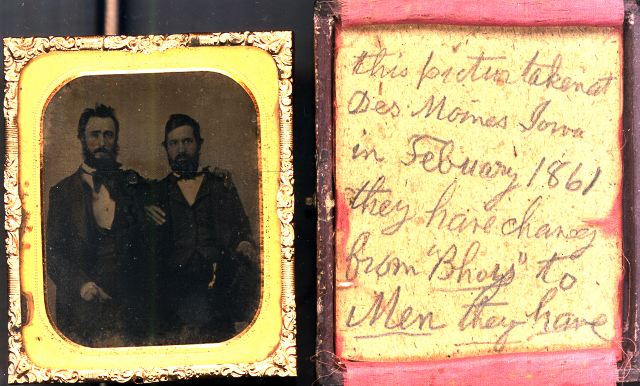 this pictur taken at
Des Moines Iowa
in Febuary 1861
they have chang
from "Bhoys" to
Men they have